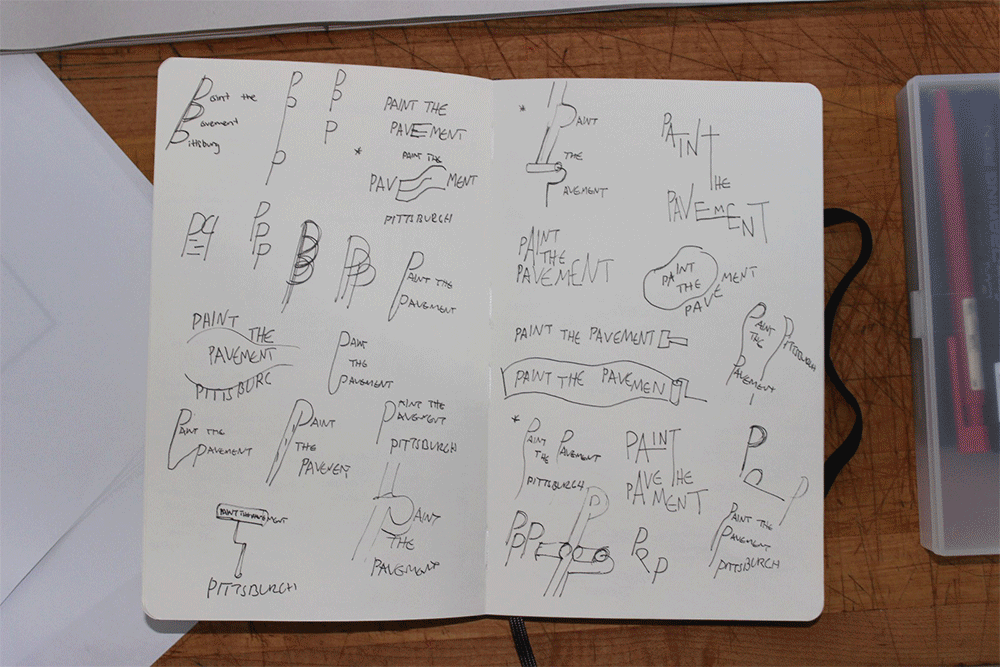 Paint the
Pavement
Pittsburg
P
P
P
P
P
P
*
PAINT THE
PAVEMENT
PAINT THE
PAVEMENT
PITTSBURGH
P
P
P
PAINT THE
PAVEMENT
PAINT THE
PAVEMENT
PITTSBURG
PAINT
THE
PAVEMENT
PAINT THE
PAVEMENT
PAINT
THE
PAVEMENT
PAINT THE
PAVEMENT
PITTSBURGH
PAINT THE PAVEMENT
PITTSBURGH
PAINT
THE
PAVEMENT
*
PAINT
THE
PAVEMENT
PAINT
THE
PAVEMENT
PAINT
THE
PAVEMENT
PAINT
THE
PAVEMENT
PAINT THE PAVEMENT
PAINT THE PAVEMEN
PAINT
THE
PAVEMENT
PITTSBURGH
*
PAINT
THE
PAVEMENT
PITTSBURGH
PAINT
THE
PAVEMENT
P
P
P
PPP
P
P
P
P
PAINT THE
PAVEMENT
PITTSBURGH